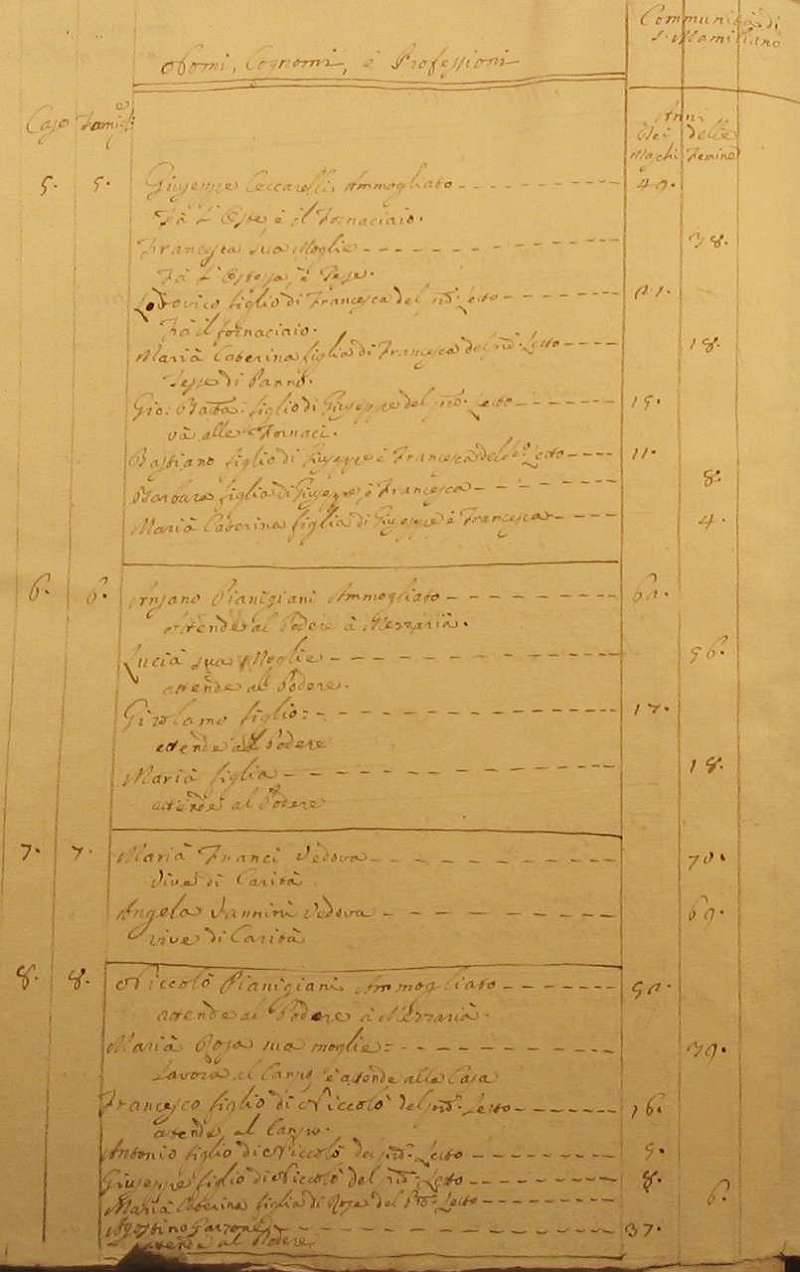 Communità di
S. Mamiliano
Nomi, Cognomi, è Professioni
Case Famigl:
Anni
Dei delle
Maschi Femine
5. 5. Giuseppe Ceccarelli Ammogliato 49.
Fà L'Oste è il Fornaciaio.
Francesca sua Moglie 38.
Fà L'Ostessa, è Tesse.
Lodovico figlio di Francesca del Letto
Fà il fornaciaio.
Maria Caterina figlia di Francesca del Letto 18.
Tesse di Panni.
Gio: Batta: figlio di Giuseppe del Letto 15.
và alle Fornaci.
Bastiano figlio di Giuseppe è Francesca del Letto 11.
Barbara figlia di Giuseppe è Francesca 8.
Maria Caterina figlia di Giuseppe è Francesca 4.
6. 6. Pianigiani Ammogliato
attende al Podere à
Lucia sua Moglie 56.
attende al Podere.
Girolamo figlio: 17.
attende al Podere
Maria figlia 18.
attende al Podere
7. 7. Maria Franci Vedova 70.
Vive di Carità
Angela Vannini Vedova 69.
vive di Carità
8. 8. Niccolò Pianigiani Ammogliato
attende al Podere à
Maria Rosa sua moglie: 39.
Lavora al Campo è attende alla Casa
Francesco figlio di Niccolò del Letto 16.
attende al Campo.
Antonio figlio di Niccolò del Letto 9.
Giuseppe figlio di Niccolò del Letto 8.
Maria Caterina figlia di Rosa del Letto 6.
Agostino Garzone 37.
attende al Podere.